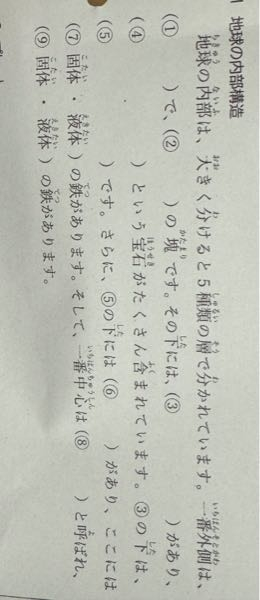 1 地球の内部構造
地球の内部は、大きく分けると5種類の層で分かれています。一番外側は、
(① )で、(② )の塊です。その下には、(③ )があり、
(④ )という宝石がたくさん含まれています。③の下は、
(⑤ )です。さらに、⑤の下には(⑥ )があり、ここには
(⑦ 固体・液体)の鉄があります。そして、一番中心は(⑧ )と呼ばれ、
(⑨ 固体・液体)の鉄があります。